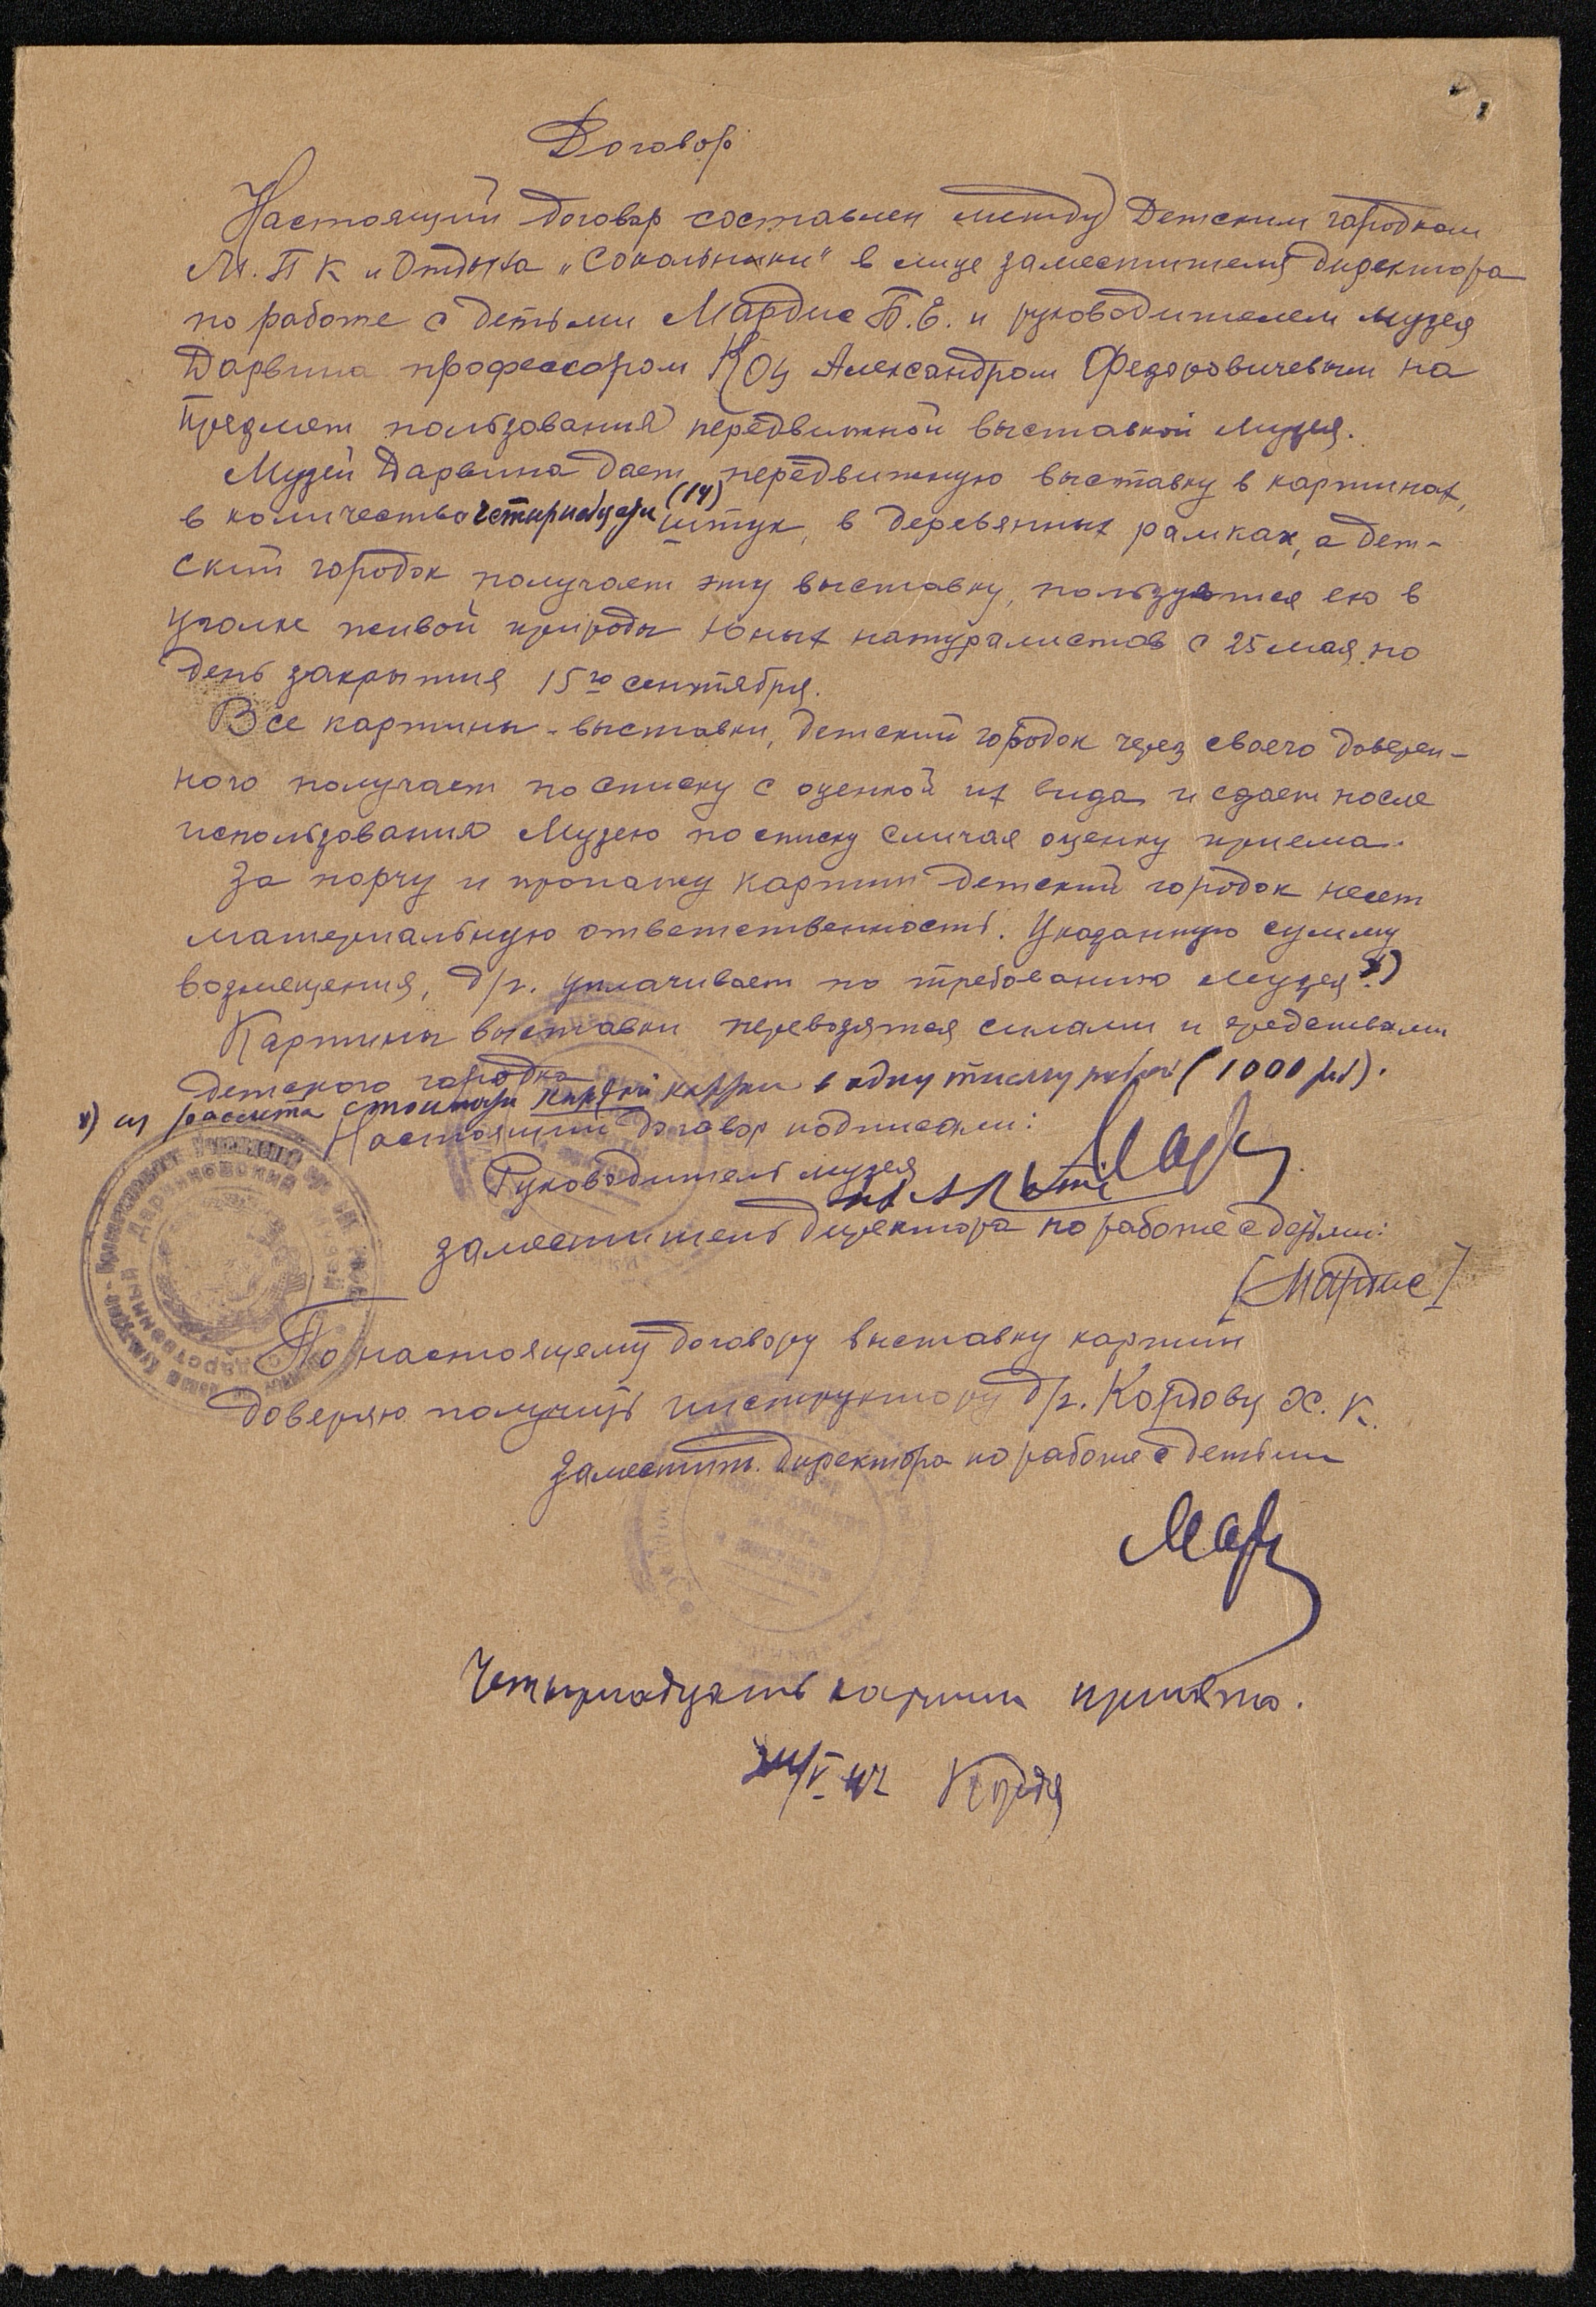 Договор
Настоящий договор составлен между Детским городком
М. П К и Отдыха „Сокольники" в лице заместителя директора
по работе с детьми Мардис Б. Е. и руководителем музея
Дарвина профессором Коц Александром Федоровичевым на
предмет пользования передвижной выставкой музея.
Музей Дарвина дает передвижную выставку в картинах,
в количество четырнадцати (14) штук, в деревянных рамках, а дет-
ский городок получает эту выставку, пользуются ею в
уголке живой природы юных натуралистов с 25 мая по
день закрытия 15го сентября.
Все картины - выставки, детский городок через своего доверен-
ного получает по списку с оценкой их вида и сдает после
использования Музею по списку сличая оценку приема.
За порчу и пропажу картин детский городок несет
материальную ответственность. Указанную сумму
возмещения, д/г. уплачивает по требованию музея. х)
Картины выставки перевозятся силами и средствами
детского городка
х) из расчета стоимости каждой картины в одну тысячу рублей (1000 р).
Настоящий договор подписали:
Руководитель музея
заместитель директора по работе с детьми:
[Мардис]
По настоящему договору выставку картин
доверяю получить инструктору д/г. Кордову Х. К.
заместит. директора по работе с детьми
Четырнадцать картин принято.
/V 42